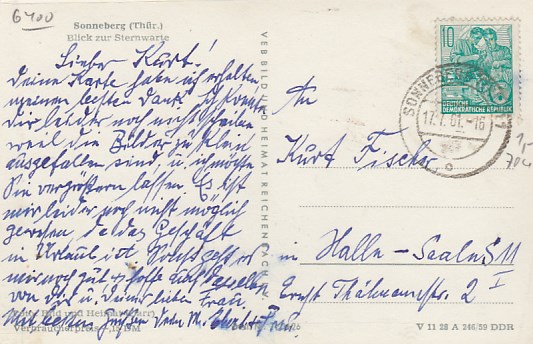 6400
Sonneberg (Thür.)
Blick zur Sternwarte
Lieber Kurt!
Deine Karte habe ich erhalten
meinen besten Dank. Ich konnte
Dir leider noch nicht
weil die Bilder zu klein
ausgefallen sind u. ich möchte
Sie vergrößern lassen. Es ist
mir leider noch nicht möglich
gewesen da das Geschäft
in Urlaub ist. Sonst geht es
mir noch gut u. hoffe auch dasselbe
von Dir u. Deiner lieben Frau.
Mit besten Grüßen Dein
Foto: Bild und Heimat
Verbraucherpreis DM
VEB BILD UND HEIMAT REICHENBACH
10
DEUTSCHE
DEMOKRATISCHE REPUBLIK
SONNEBERG
17.7.61.-16
An
Kurt Fischer
in Halle-Saale
I
Ernst Thälmannstr. 2
V 11 28 A 246/59 DDR